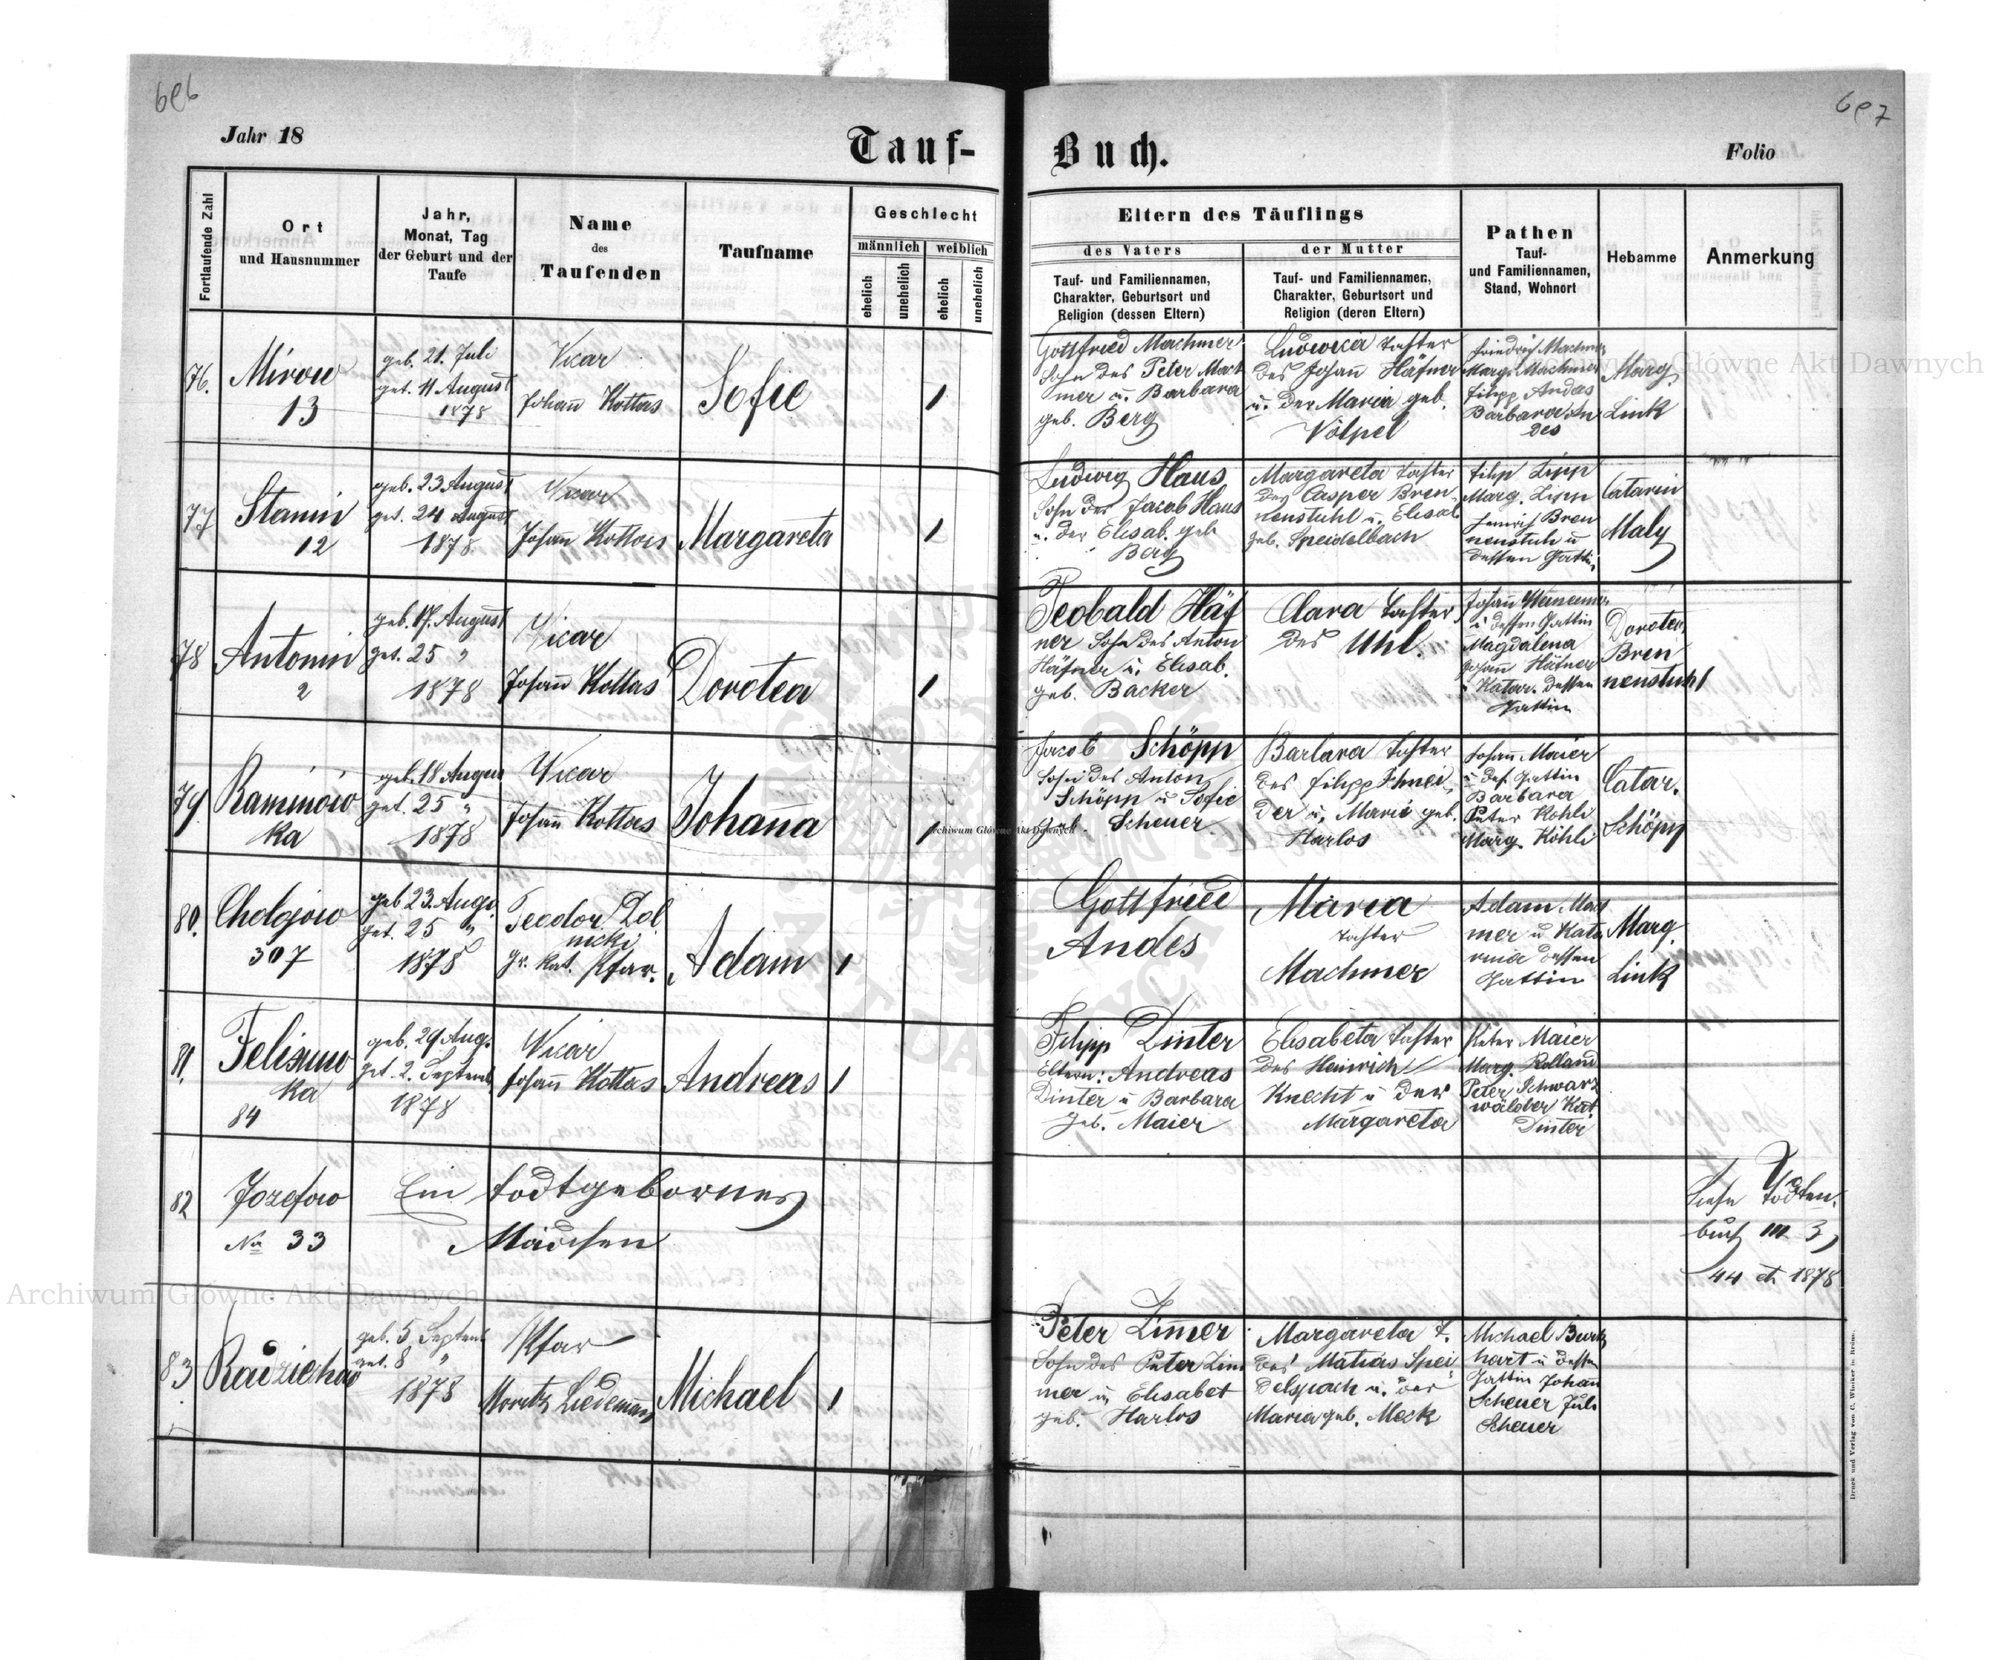 696
Jahr 18
Tauf-
Fortlaufende Zahl
Ort
und Hausnummer
Jahr,
Monat, Tag
der Geburt und der
Taufe
Name
des
Taufenden
Taufname
Geschlecht
männlich
weiblich
ehelich
unehelich
ehelich
unehelich
76.
Mirow
13
geb. 21. Juli
get. 11 August
1878
Vicar
Johañ Kottas
Sofie
1
77
Stanin
12
geb. 23 August
get. 24 August
1878
Vicar
Johañ Kottas
Margareta
1
78
Antonin
2
geb. 17. August
get. 25 "
1878
Vicar
Johañ Kottas
Dorotea
1
79
Raminow
ka
geb. 18 Augus
get. 25 "
1878
Vicar
Johañ Kottas
Johaña
1
80.
Cholojow
307
geb 23. Aug.
get. 25 "
1878
Teodor Dol
nicki
gr. kat. Pfar.
Adam
1
81.
Felixuw
ka
84
geb. 29 Aug.
get. 2. Septemb
1878
Vicar
Johañ Kottas
Andreas
1
82
Jozefow
No 33
Ein todtgebornes
Mädchen
83
Radziechow
geb. 5 Septemb
get. 8 "
1878
Pfar
Moritz Liedemañ
Michael
1
697
Buch.
Folio
Eltern des Täuflings
des Vaters
der Mutter
Tauf- und Familiennamen,
Charakter, Geburtsort und
Religion (dessen Eltern)
Tauf- und Familiennamen,
Charakter, Geburtsort und
Religion (deren Eltern)
Pathen
Tauf-
und Familiennamen,
Stand, Wohnort
Hebamme
Anmerkung
Gottfried Machmer
Sohn des Peter Mach
mer u. Barbara
geb. Berg
Ludwica Tochter
des Johañ Häfner
u. der Maria geb.
Völpel
Friedrich Machmer
Marg. Machmer
Filipp Andes
Barbara An
des
Marg.
Link
Ludwig Haus
Sohn des Jacob Haus
u. der Elisab. geb
Berg
Margareta Tochter
des Casper Bren
nenstuhl u. Elisab
geb. Speidelbach
Filip Lipp
Marg. Lipp
Heinrich Bren
nenstuhl u
dessen Gattin
Catarin
Maly
Teobald Häf
ner Sohn des Anton
Häfner u. Elisab.
geb. Backer
Clara Tochter
des Uhl.
Johañ
u dessen Gattin
Magdalena
Johañ Häfner
u Katar. dessen
Gattin
Dorotea
Bren
nenstuhl
Jacob Schöpp
Sohn des Anton
Schöpp u Sofie
geb. Scheuer
Barbara Tochter
des Filipp Schnei
der u. Marie geb.
Harlos
Johañ Maier
u des. Gattin
Barbara
Peter Köhli
Marg. Köhli
Catar.
Schöpp
Gottfried
Andes
Maria
Tochter
Machmer
Adam Mach
mer u Kata
rina dessen
Gattin
Marg.
Link
Filipp Dinter
Eltern: Andreas
Dinter u Barbara
geb. Maier
Elisabeta Tochter
des Heinrich
Knecht u der
Margareta
Peter Maier
Marg. Rolland
Peter Schwarz
wälder Kat.
Dinter
Siehe Todten
buch III 3
44 1878
Peter Zim̄er
Sohn des Peter Zim
mer u Elisabet
geb. Harlos
Margareta T.
des Matias Spei
delspach u. der
Maria geb. Meck
Michael Burk
hart u dessen
Gattin Johañ
Scheuer Juli
Scheuer
Druck und Verlag von C. Winiker in Brünn.
Archiwum Główne Akt Dawnych
Archiwum Główne Akt Dawnych
Archiwum Główne Akt Dawnych